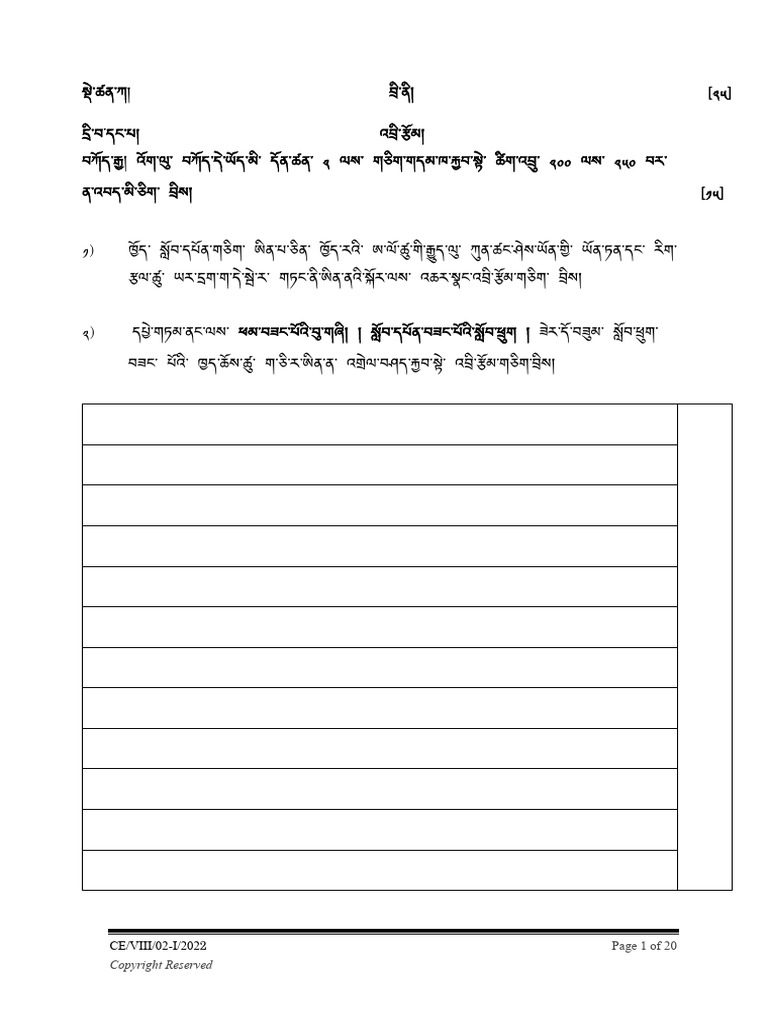 སྡེ་ཚན་ཀ། བྲི་ནི། [༢༥]
དྲི་བ་དང་པ། འབྲི་རྩོམ།
བཀོད་རྒྱ། འོག་ལུ་ བཀོད་དེ་ཡོད་མི་ དོན་ཚན་ ༢ ལས་ གཅིག་གདམ་ཁ་རྐྱབ་སྟེ་ ཚིག་འབྲུ་ ༢༠༠ ལས་ ༢༥༠ བར་
ན་འབད་མི་ཅིག་ བྲིས། [༡༥]
༡) ཁྱོད་ སློབ་དཔོན་གཅིག་ ཨིན་པ་ཅིན་ ཁྱོད་རའི་ ཨ་ལོ་ཚུ་གི་རྒྱུད་ལུ་ ཀུན་ཚང་ཤེས་ཡོན་གྱི་ ཡོན་ཏན་དང་ རིག་
རྩལ་ཚུ་ ཡར་དྲག་ག་དེ་སྦེ་ར་ གཏང་ནི་ཨིན་ནའི་སྐོར་ལས་ འཆར་སྣང་འབྲི་རྩོམ་གཅིག་ བྲིས།
༢) དཔྱེ་གཏམ་ནང་ལས་ ཕམ་བཟང་པོའི་བུ་གཞི། ། སློབ་དཔོན་བཟང་པོའི་སློབ་ཕྲུག ། ཟེར་དོ་བཟུམ་ སློབ་ཕྲུག་
བཟང་ པོའི་ ཁྱད་ཆོས་ཚུ་ ག་ཅི་ར་ཨིན་ན་ འགྲེལ་བཤད་རྐྱབ་སྟེ་ འབྲི་རྩོམ་གཅིག་བྲིས།
CE/VIII/02-I/2022 Page 1 of 20
Copyright Reserved